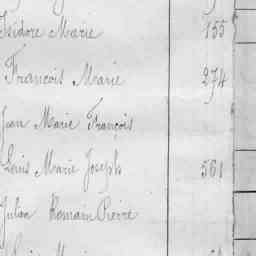 Isidore Marie 155
François Marie 274
Jean Marie François
Louis Marie Joseph 561
Julien Romain Pierre